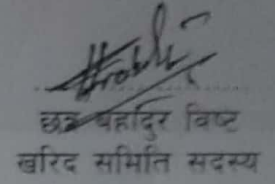 छत्र बहादुर विष्ट
खरिद समिति सदस्य